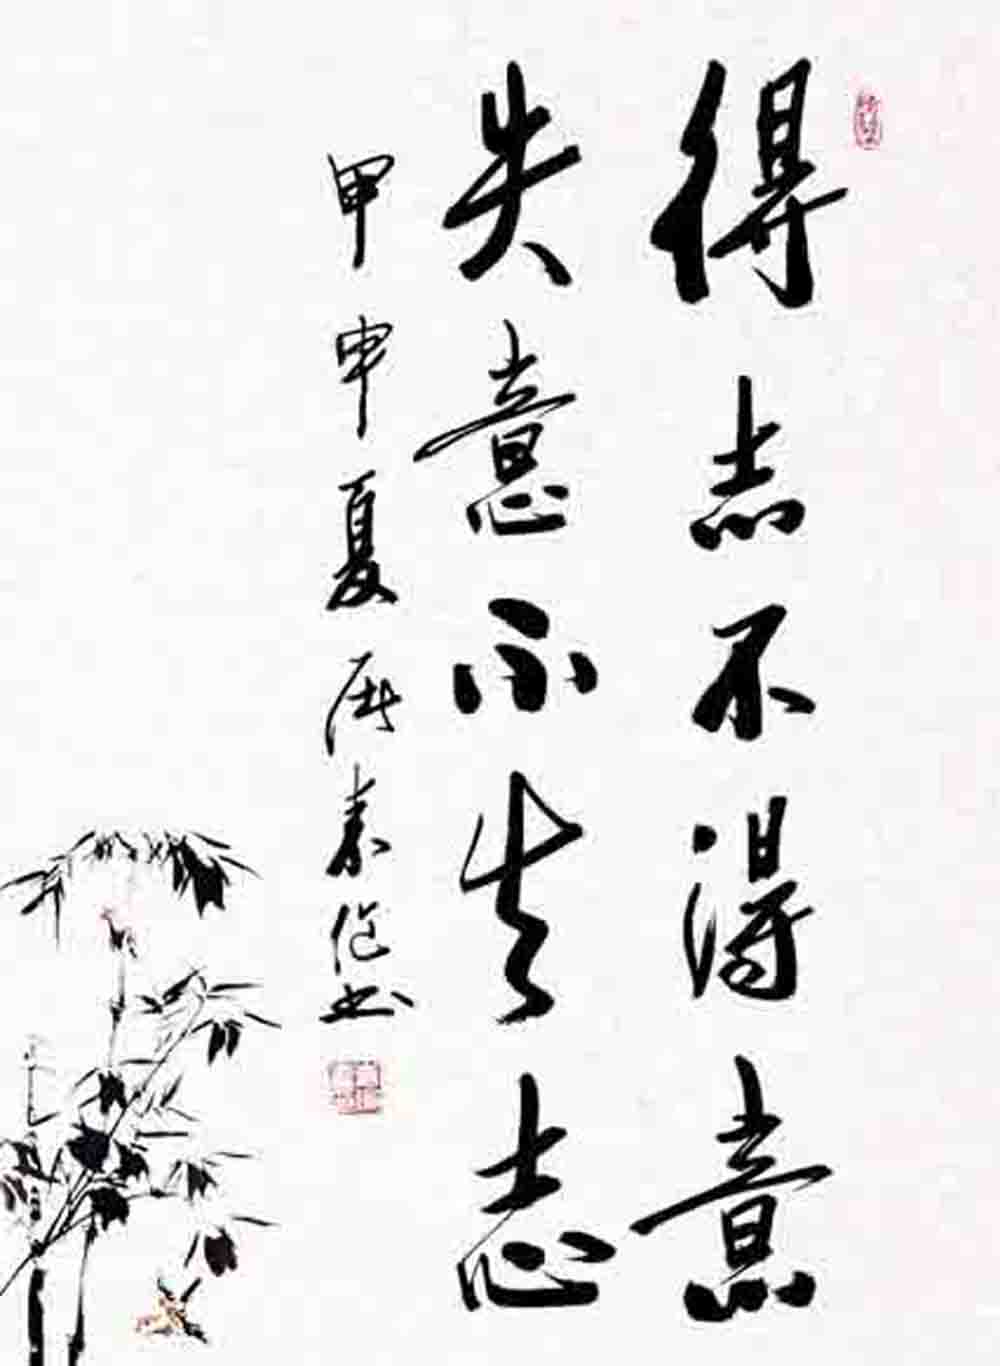 得志不得意
失意不失志
甲申夏 書